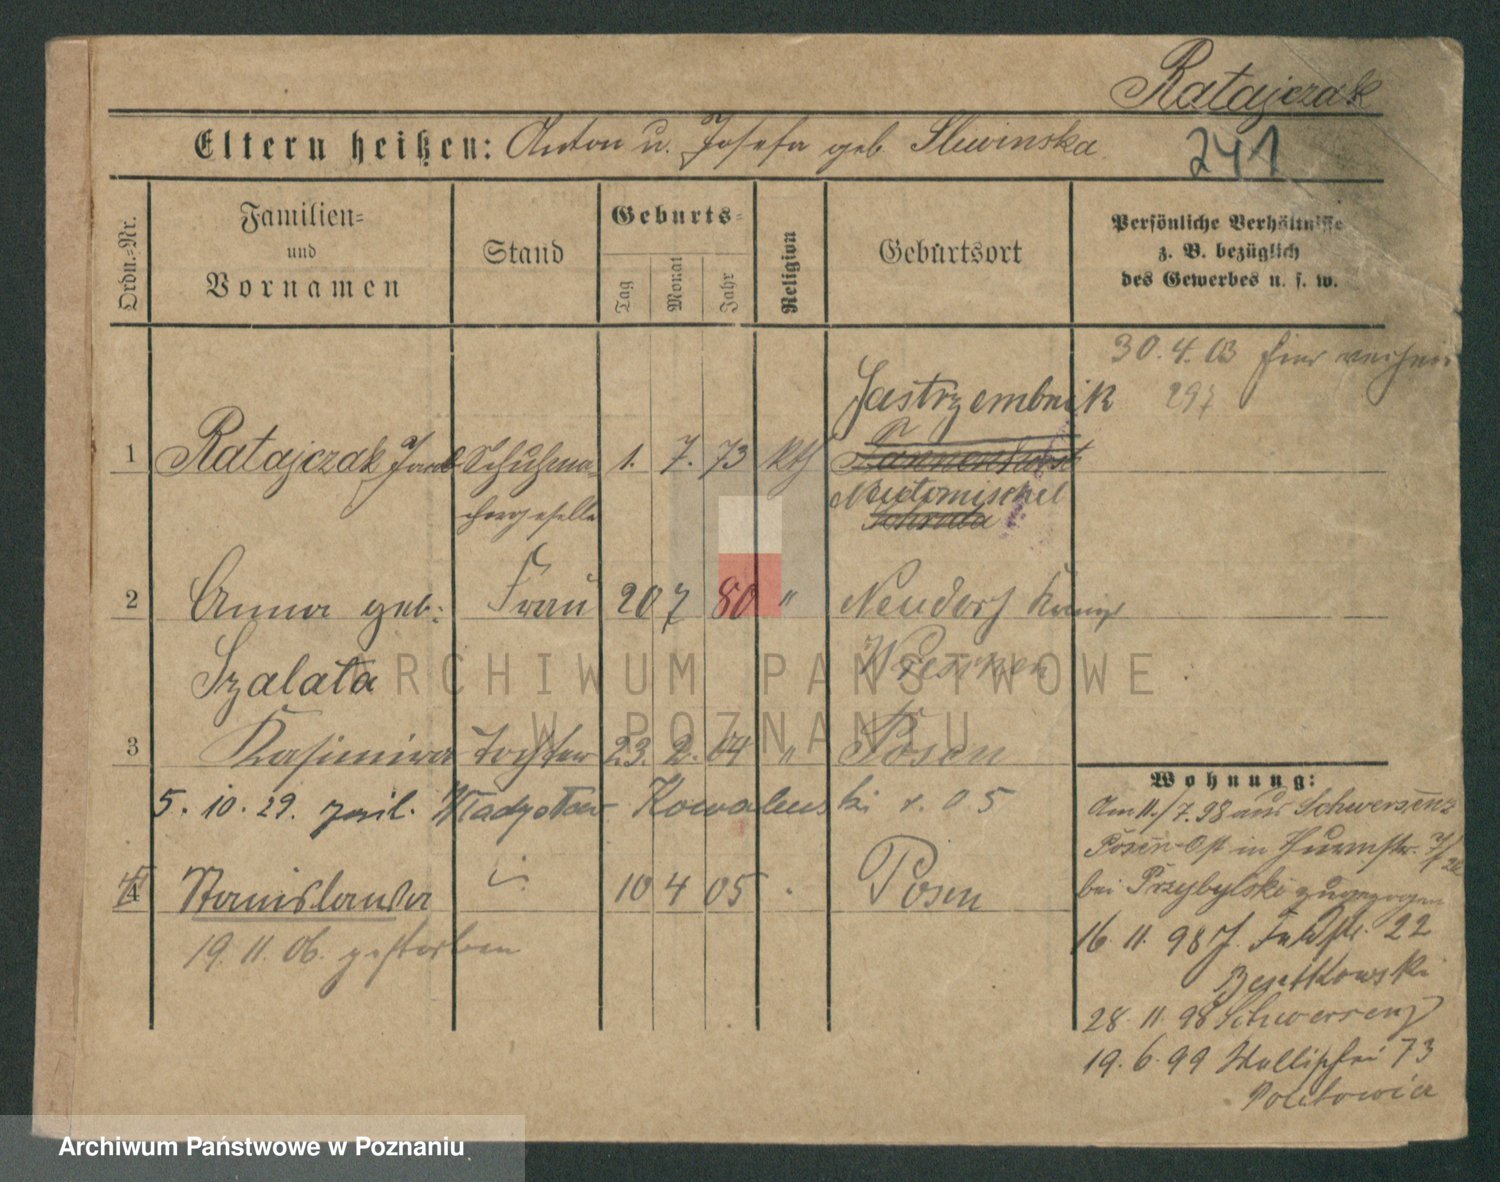 Ratajczak
Eltern heißen: Anton u. Josefa geb Sliwinska
241
Ordn.=Nr.
Familien=
und
Vornamen
Stand
Geburts=
Tag
Monat
Jahr
Religion
Geburtsort
Persönliche Verhältnisse
z. B. bezüglich
des Gewerbes u. s. w.
30.4.03 hier
297
Jastrzembnik
1 Ratajczak Jacob Schuhma= 1. 7. 73 kth Tannenhorst
chergeselle Neutomischel
Schroda
2 Anna geb: Frau 20 7 80 " Neudorf Königl
Szalata Wreschen
3 Kasimira Tochter 23. 2. 04 " Posen
5. 10. 29. Wladyslaw Kowalewski v. 05
4 Stanislawa 10 4 05 Posen
19. 11. 06. gestorben
Wohnung:
Am 11./7. 98 aus Schwersenz
Posen-Ost in Thurmstr.
bei Przybylski zugezogen
16. 11. 98 J. Feldstr. 22
Bentkowski
28. 11. 98 Schwersenz
19. 6. 99 Wallischei 73
ARCHIWUM PAŃSTWOWE
W POZNANIU
Archiwum Państwowe w Poznaniu